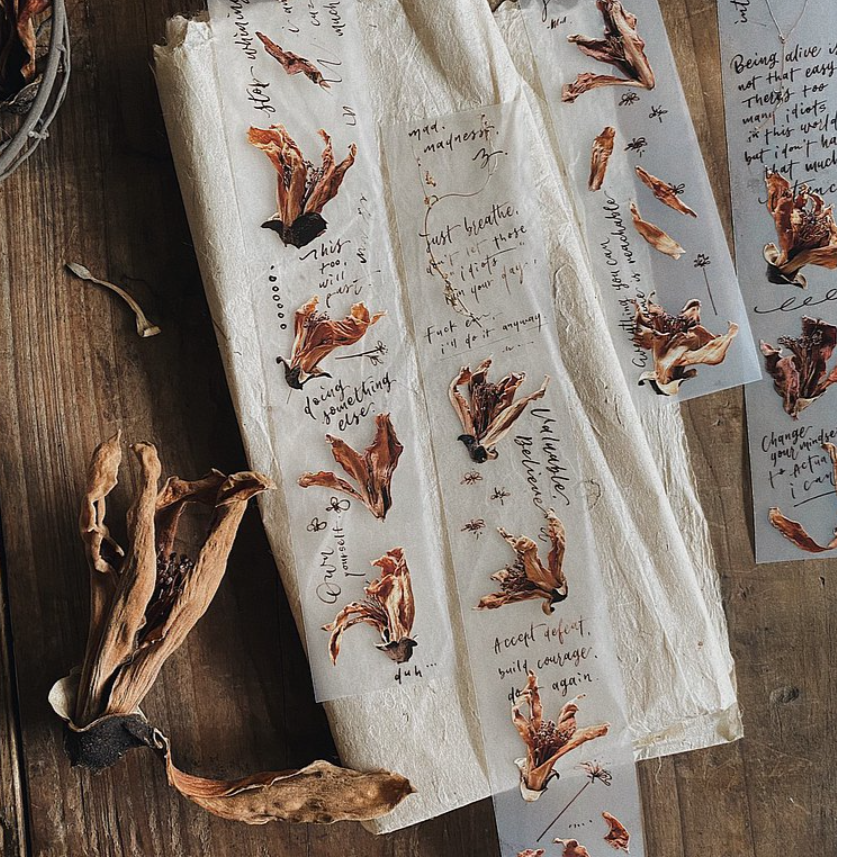 Stop whining
much
this
too,
will
past.
doing
something
else.
Own
yourself
duh...
mad.
madness.
Just breathe,
don't let those
idiots
your day.
i'll do it anyway.
Valuable.
Believe
Accept defeat,
build courage.
do again.
you can
is reachable
Being alive is
not that easy
There's too
many idiots
in this world
but i don't ha
that much
Change
your mindse
to Actua
i can